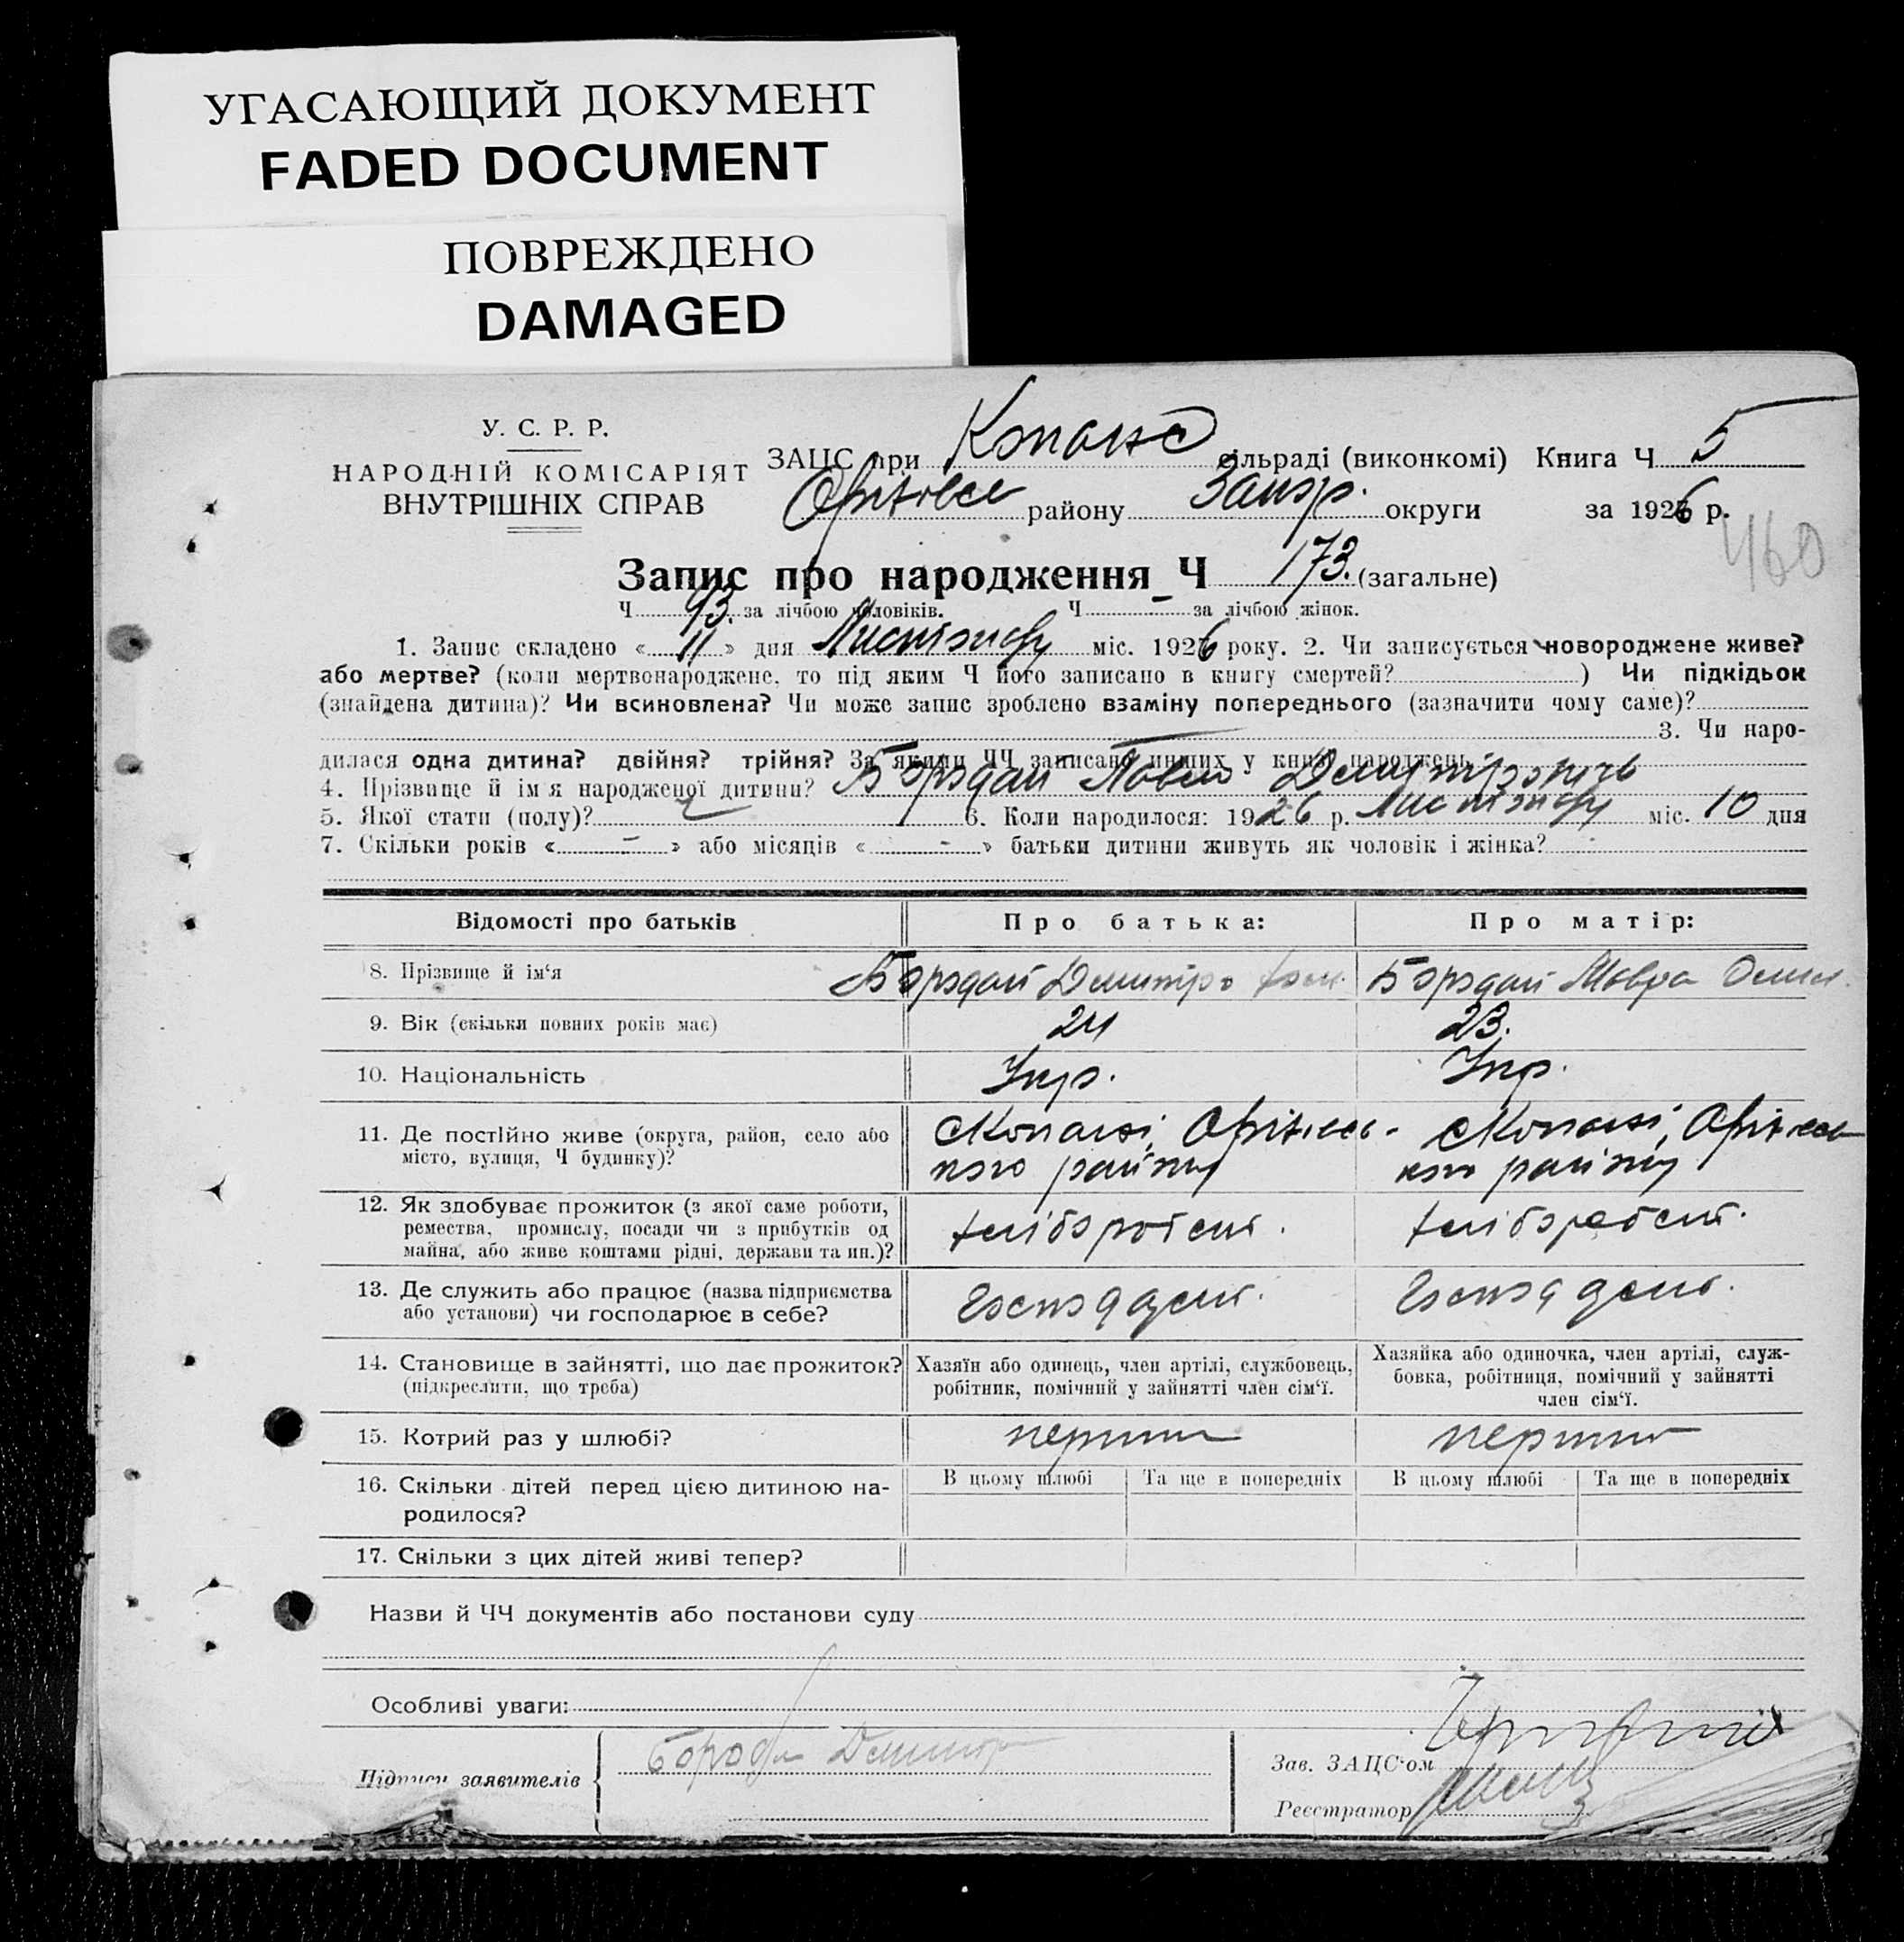 УГАСАЮЩИЙ ДОКУМЕНТ
FADED DOCUMENT
ПОВРЕЖДЕНО
DAMAGED
У. С. Р. Р.
НАРОДНІЙ КОМІСАРІЯТ
ВНУТРІШНІХ СПРАВ
ЗАЦС при сільраді (виконкомі) Книга Ч 5
району Запор. округи за 1926 р.
460
Запис про народження Ч 173. (загальне)
Ч 93. за лічбою чоловіків. Ч - за лічбою жінок.
1. Запис складено « 11 » дня Листопаду міс. 1926 року. 2. Чи записується новороджене живе?
або мертве? (коли мертвонароджене, то під яким Ч його записано в книгу смертей? ) Чи підкідьок
(знайдена дитина)? Чи всиновлена? Чи може запис зроблено взаміну попереднього (зазначити чому саме)?
3. Чи наро-
дилася одна дитина? двійня? трійня? За якими ЧЧ записано инших у книзі народжень
4. Прізвище й ім'я народженої дитини? Бородай Павло Дмитрович
5. Якої стати (полу)? ч 6. Коли народилося: 1926 р. Листопаду міс. 10 дня
7. Скільки років « - » або місяців « - » батьки дитини живуть як чоловік і жінка?
Відомості про батьків Про батька: Про матір:
8. Прізвище й ім'я Бородай Дмитро Бородай Мавра
9. Вік (скільки повних років має) 24 23.
10. Національність Укр. Укр.
11. Де постійно живе (округа, район, село або
місто, вулиця, Ч будинку)? с Копані, Оріхівсь- с Копані, Оріхівсь
кого району кого району
12. Як здобуває прожиток (з якої саме роботи,
ремества, промислу, посади чи з прибутків од
майна, або живе коштами рідні, держави та ин.)? хліборобст. хліборобст.
13. Де служить або працює (назва підприємства
або установи) чи господарює в себе?
14. Становище в зайнятті, що дає прожиток?
(підкреслити, що треба)
Хазяїн або одинець, член артілі, службовець,
робітник, помічний у зайнятті член сім'ї.
Хазяйка або одиночка, член артілі, служ-
бовка, робітниця, помічний у зайнятті
член сім'ї.
15. Котрий раз у шлюбі?
16. Скільки дітей перед цією дитиною на-
родилося?
В цьому шлюбі Та ще в попередніх В цьому шлюбі Та ще в попередніх
17. Скільки з цих дітей живі тепер?
Назви й ЧЧ документів або постанови суду
Особливі уваги:
Підписи заявителів
Зав. ЗАЦС'ом
Реєстратор